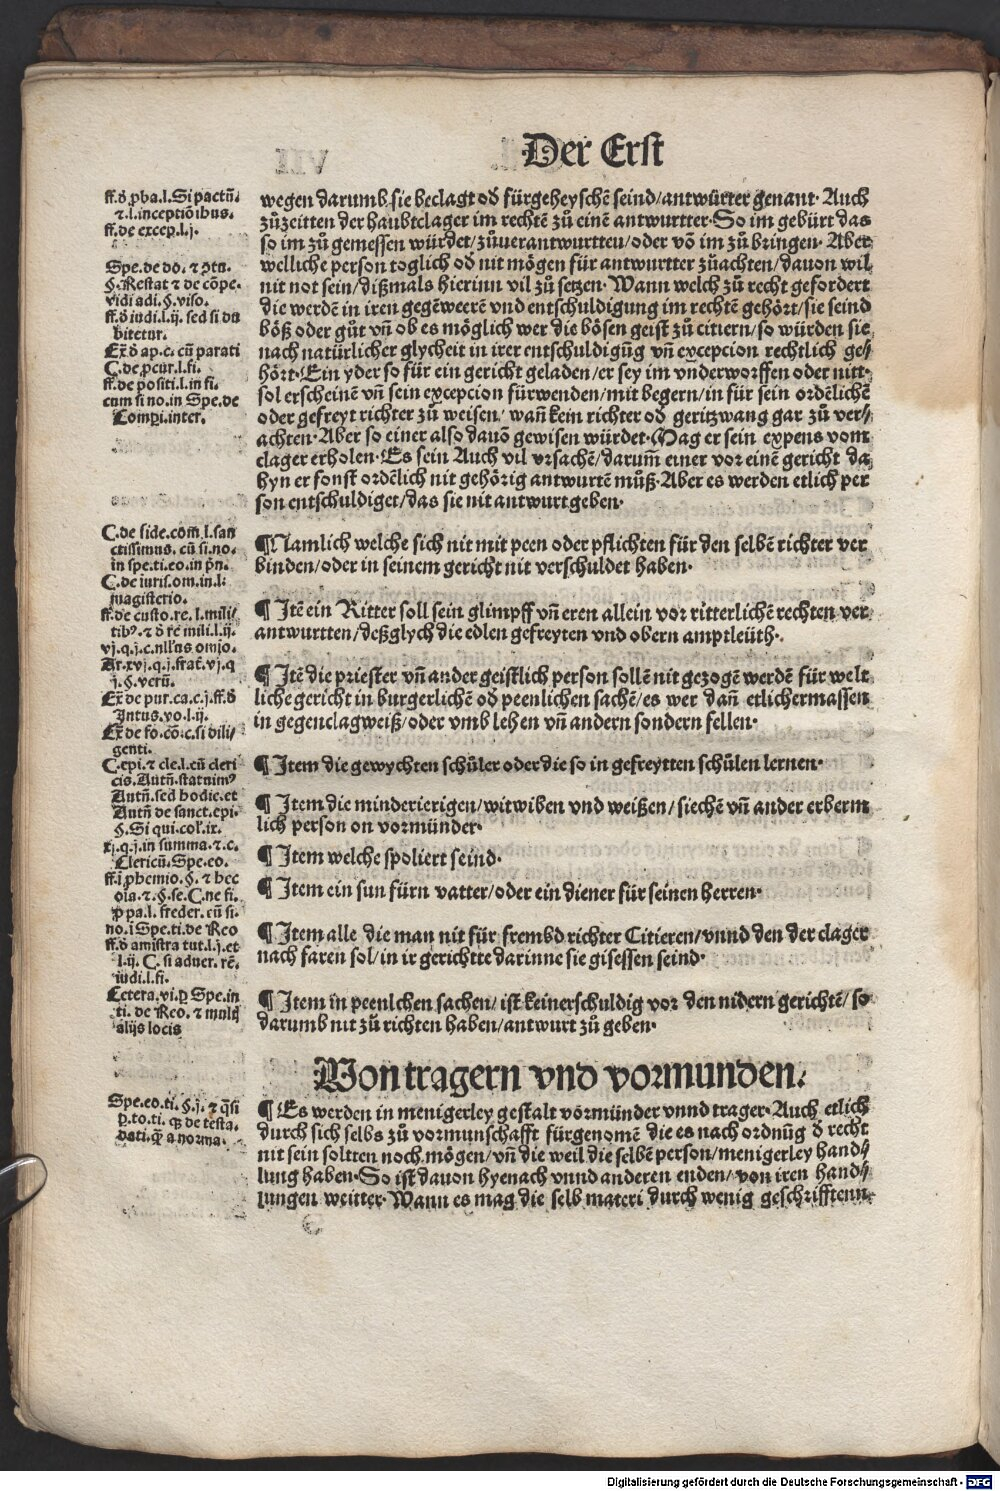 Der Erst
ff.ď ꝓba.l.Si pactū.
⁊.l.inceptiōibus.
ff.de excep.l.j.
Spe.de do.⁊ ꝯtu.
§.Restat ⁊ de cōpe.
vidi adi.§.viso.
ff.ď iudi.l.ij. sed si du
bitetur.
Ex̄ ď ap.c. cū parati
C.de ꝓcur.l.fi.
ff.de positi.l.in fi.
cum si no.in Spe.de
Compi.inter.
wegen darumb sie beclagt oď fürgeheyschē seind/antwürter genant. Auch
zůzeitten der haubtclager im rechtē zů einē antwurtter. So im gebürt das
so im zů gemessen würdet/zůuerantwurtten/oder vō im zů bringen. Aber
welliche person toglich oď nit mögen für antwurtter zůachten/dauon wil
nit not sein/dißmals hierinn vil zů setzen. Wann welch zů recht gefordert
die werdē in iren gegēweerē vnd entschuldigung im rechtē gehört/sie seind
böß oder gůt vn̄ ob es möglich wer die bösen geist zů citiern/so würden sie
nach natürlicher glycheit in irer entschuldigūg vn̄ excepcion rechtlich ge/
hört. Ein yder so für ein gericht geladen/er sey im vnderworffen oder nitt.
sol erscheinē vn̄ sein excepcion fürwenden/mit begern/in für sein ordēlichē
oder gefreyt richter zů weisen/ wan̄ kein richter oď geritzwang gar zů ver/
achten. Aber so einer also dauō gewisen würdet. Mag er sein expens vom
clager erholen. Es sein Auch vil vrsachē/darum̄ einer vor einē gericht da
hyn er sonst ordēlich nit gehörig antwurtē můß. Aber es werden etlich per
son entschuldiget/das sie nit antwurt geben.
C.de side.com̄.l.san
ctissimus. cū si.no.
in spe.ti.eo.in pn̄.
C.de iuris.om.in.l.
magisterio.
ff.de custo.re.l.mili/
tibꝰ.⁊ ď rē mili.l.ij.
vj.q.j.c.nllꝰus omio.
Ar.xvj.q.j.frat̄.vj.q
j.§.verū.
Ex̄ de pur.ca.c.j.ff.ď
Intus.vo.l.ij.
Ex̄ de fo.cō.c.si dili/
genti.
C.epi.⁊ cle.l.cū cleri
cis.Autn̄.statuimꝰ
Autn̄.sed hodie.et
Autn̄ de sanct.epi.
§.Si qui.col.ix.
xj.q.j.in summa.⁊.c.
Clericū.Spe.eo.
ff.ī ꝓhemio.§.⁊ hec
ola.⁊.§.se.C.ne fi.
ꝓ pa.l.freder.cū si.
no.ī Spe.ti.de Reo
ff.ď amistra tut.l.j.et
l.ij. C. si aduer. rē.
iudi.l.fi.
Cetera.vi.ꝑ Spe.in
ti. de Reo. ⁊ mulꝗ
alijs locis
¶ Namlich welche sich nit mit peen oder pflichten für den selbē richter ver
binden/oder in seinem gericht nit verschuldet haben.
¶ Itē ein Ritter soll sein glimpff vn̄ eren allein vor ritterlichē rechten ver
antwurtten/deßglych die edlen gefreyten vnd obern amptleüth.
¶ Itē die priester vn̄ ander geistlich person sollē nit gezogē werdē für welt
liche gericht in burgerlichē oď peenlichen sachē/es wer dan̄ etlichermassen
in gegenclagweiß/oder vmb lehen vn̄ andern sondern fellen.
¶ Item die gewychten schůler oder die so in gefreytten schůlen lernen.
¶ Item die minderierigen/witwiben vnd weißen/siechē vn̄ ander erberm
lich person on vormünder.
¶ Item welche spoliert seind.
¶ Item ein sun fürn vatter/oder ein diener für seinen herren.
¶ Item alle die man nit für frembd richter Citieren/vnnd den der clager
nach faren sol/in ir gerichtte darinne sie gisessen seind.
¶ Item in peenlchen sachen/ ist keinerschuldig vor den nidern gerichtē/ so
darumb nit zů richten haben/antwurt zů geben.
Von tragern vnd vormunden.
Spe.eo.ti.§.j.⁊ q̄si
ꝑ.to.ti. ꝙ de testa.
dati.q̄ a norma.
¶ Es werden in menigerley gestalt vormünder vnnd trager. Auch etlich
durch sich selbs zů vormunschafft fürgenomē die es nach ordnūg ď recht
nit sein soltten noch mögen/vn̄ die weil die selbē person/menigerley hand/
lung haben. So ist dauon hyenach vnnd anderen enden/von iren hand/
lungen weitter. Wann es mag die selb materi durch wenig geschrifftenn
Digitalisierung gefördert durch die Deutsche Forschungsgemeinschaft - DFG